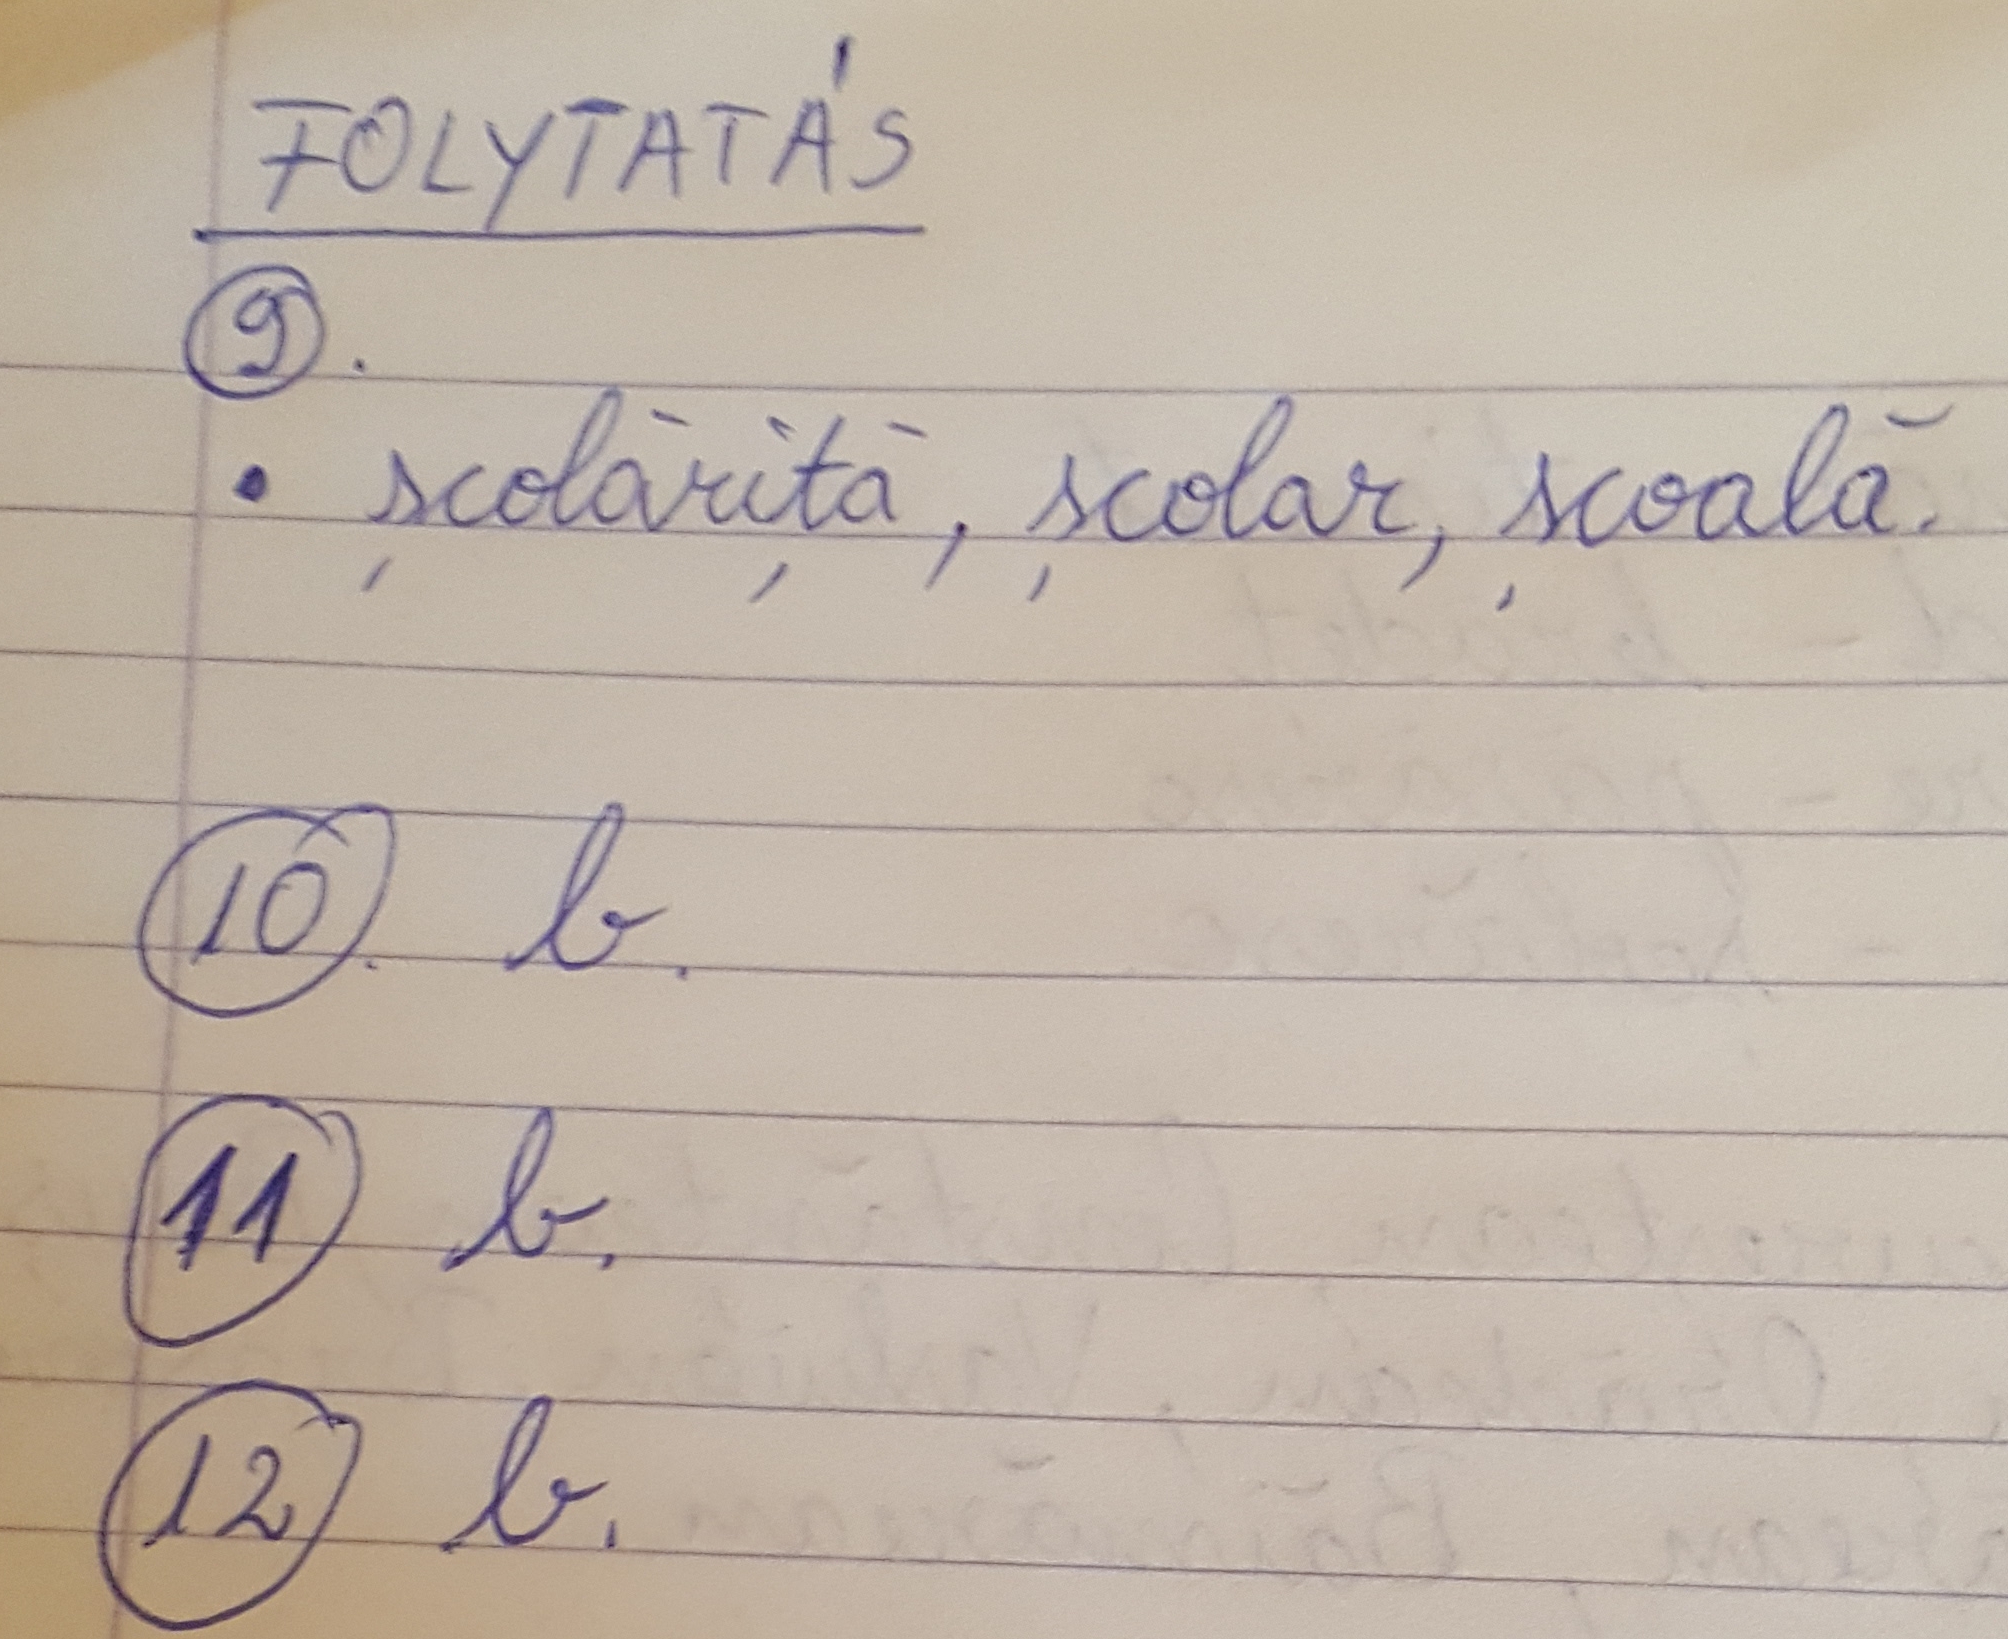 FOLYTATÁS
9.
• școlăriță, școlar, școală.
10. b.
11 b.
12 b.